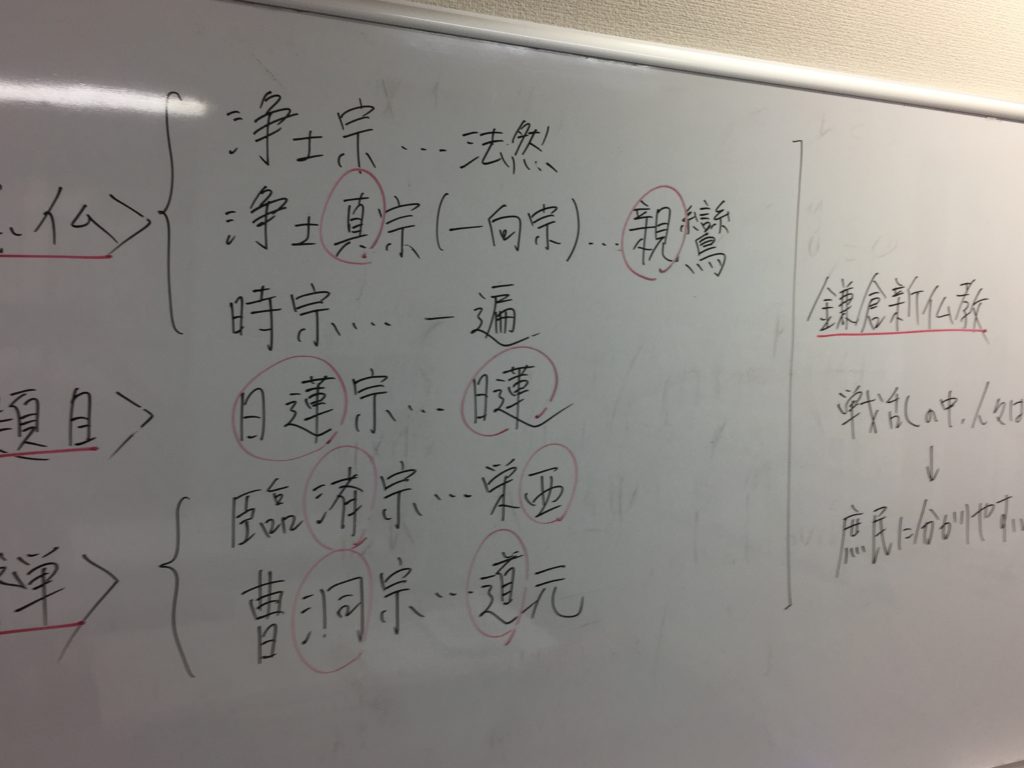 仏〉
浄土宗…法然
浄土真宗(一向宗)…親鸞
時宗…一遍
題目〉
日蓮宗…日蓮
禅〉
臨済宗…栄西
曹洞宗…道元
鎌倉新仏教
戦乱の中、人々は
↓
庶民に分かりやすい